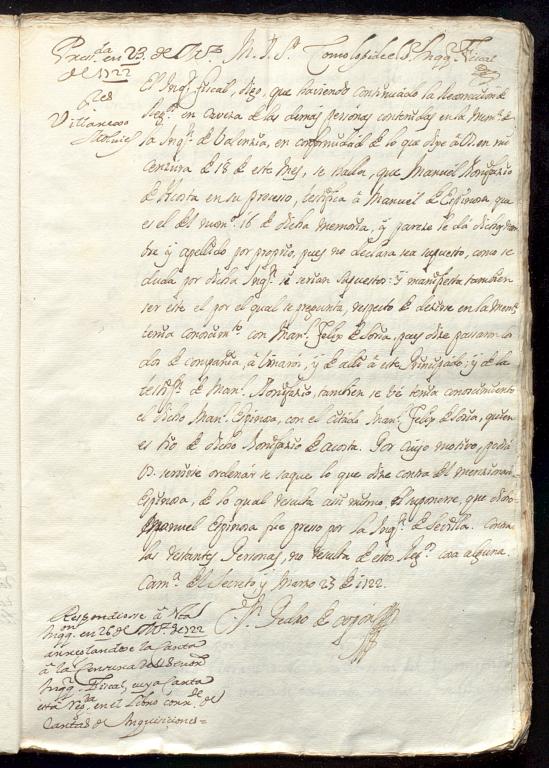 Pres.da en 23. de Mzo.
de 1722
SSres
Villavicio
Moliner
M. I. S.r Como lo pide el S. Inqq.r Fiscal
El Inq.r fiscal, dize, que haviendo continuado la Recorrecion de
Reg.os en caveza de las demas personas contenidas en la Mem.a de
la Inq.n de Valencia, en conformidad de lo que dixe a V.S. en mi
Censura de 18 de este Mes, se halla, que Manuel Bonifazio
de Acosta en su proceso, testifica â Manuel de Espinosa, que
es el del num.o 16 de dicha memoria, y pareze se dá dicho nom
bre y apellido por proprio, pues no declara sea supuesto, como se
duda por dicha Inq.n si serian supuestos: y manifiesta tambien
ser este el por el qual se pregunta, respecto de dezirse en la Mem.a
tenia conocim.to con Man.l Felix de Soria, pues dize passaron los
dos de compañia, â Vinaròs, y de alli â este Principado; y de la
testif.on de Man.l Bonifazio, tambien se vé tenia conocimiento
el dicho Man.l Espinosa, con el citado Man.l Felix de Soria, quien
es tio de dicho Bonifazio de Acosta. Por cuyo motivo, podrá
V.S. servirse ordenar se saque lo que dize contra el mencionado
Espinosa, de lo qual resulta assi mismo el suponerse, que dicho
Manuel Espinosa fue preso por la Inq.n de Sevilla. Contra
las restantes Personas, no resulta de estos Reg.os cosa alguna.
Cam.a del Secreto y Marzo 23 de 1722.
Respondiosse â dicha
Inqq.on en 26 de Mzo. de 1722
arreglandose la Carta
â la Censura del Señor
Inqq.r Fiscal, cuya Carta
està reg.da en el Libro corr.te de
Cartas de Inquisiciones=